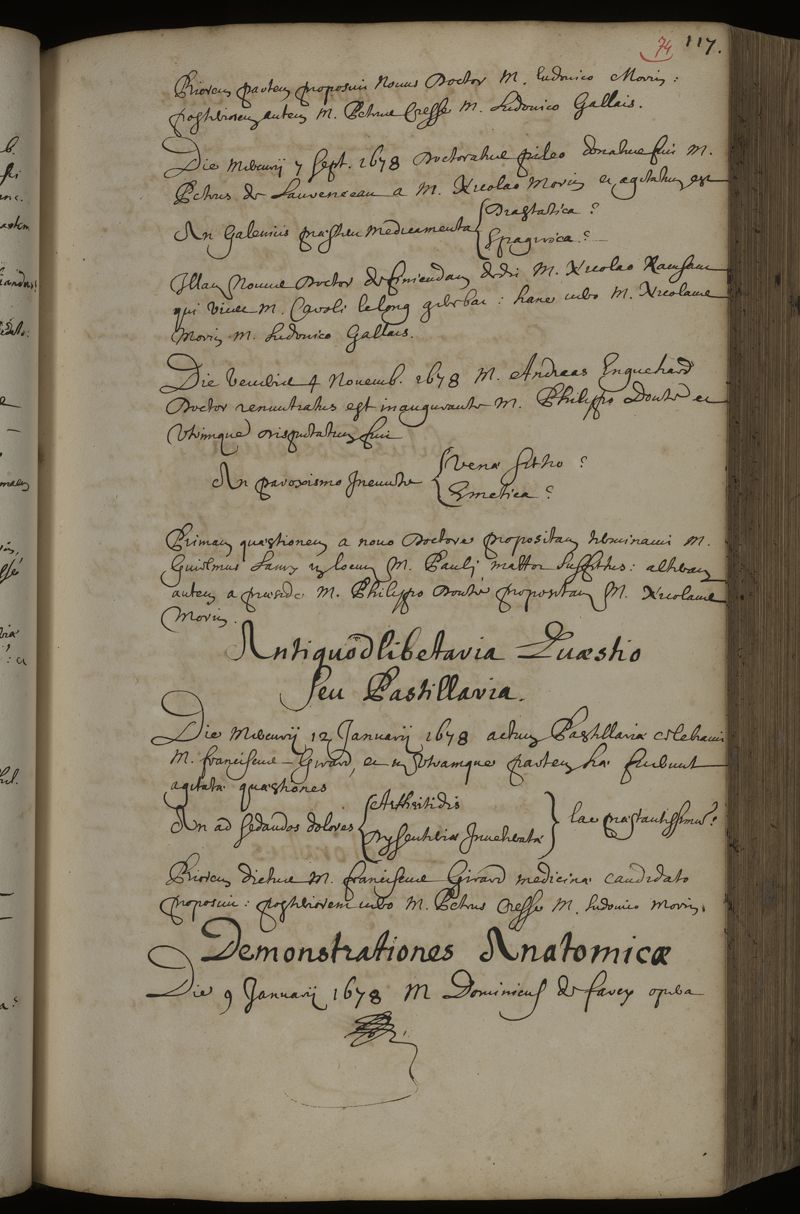 74 117.
Priorem partem proposuit Novus Doctor M. Ludovico Morin:
posteriorem autem M. Petrus Cresse M. Ludovico Gallais.
Die Mercurij 7 Sept. 1678 Doctoratus pileo donatus fuit M.
Petrus de Lauvenceau a M. Nicolao Morin et agitatum est
An Galenius praesten medicamenta { Drastatica?
Spagirica?
Illam Novus Doctor definiendam dedit M. Nicolao
qui vices M. Caroli Lelong gerebat: hanc vero M. Nicolaus
Morin M. Ludovico Gallais.
Die Veneris 4 Novemb. 1678 M. Andreas Enguehard
Doctor renuntiatus est inaugurante M. Philippo Douté et
Utrimque disputatum fuit
An paroxismo Ineunte { Venae sectio?
Emetica?
Primam quaestionem a novo Doctore propositam terminavit M.
Guillelmus Lamy in locum M. Pauli Mattot suffectus: alteram
autem a praeside M. Philippo Douté propositam M. Nicolaus
Morin.
Antiquodlibetaria Quaestio
seu Pastillaria.
Die Mercurij 12 Januarij 1678 actum Pastillariae celebravit
M. franciscus Girard, et in utramque partem hae fuerunt
agitatae quaestiones
An ad sedandos dolores { Arthritidis
Dysenteriae Inveteratae } lac praestantissimum?
Priorem dictus M. franciscus Girard medicinae candidato
proposuit: posteriorem vero M. Petrus Cresse M. Ludovico Morin.
Demonstrationes Anatomicae
Die 9 Januarij 1678 M Dominicus de farcy opera